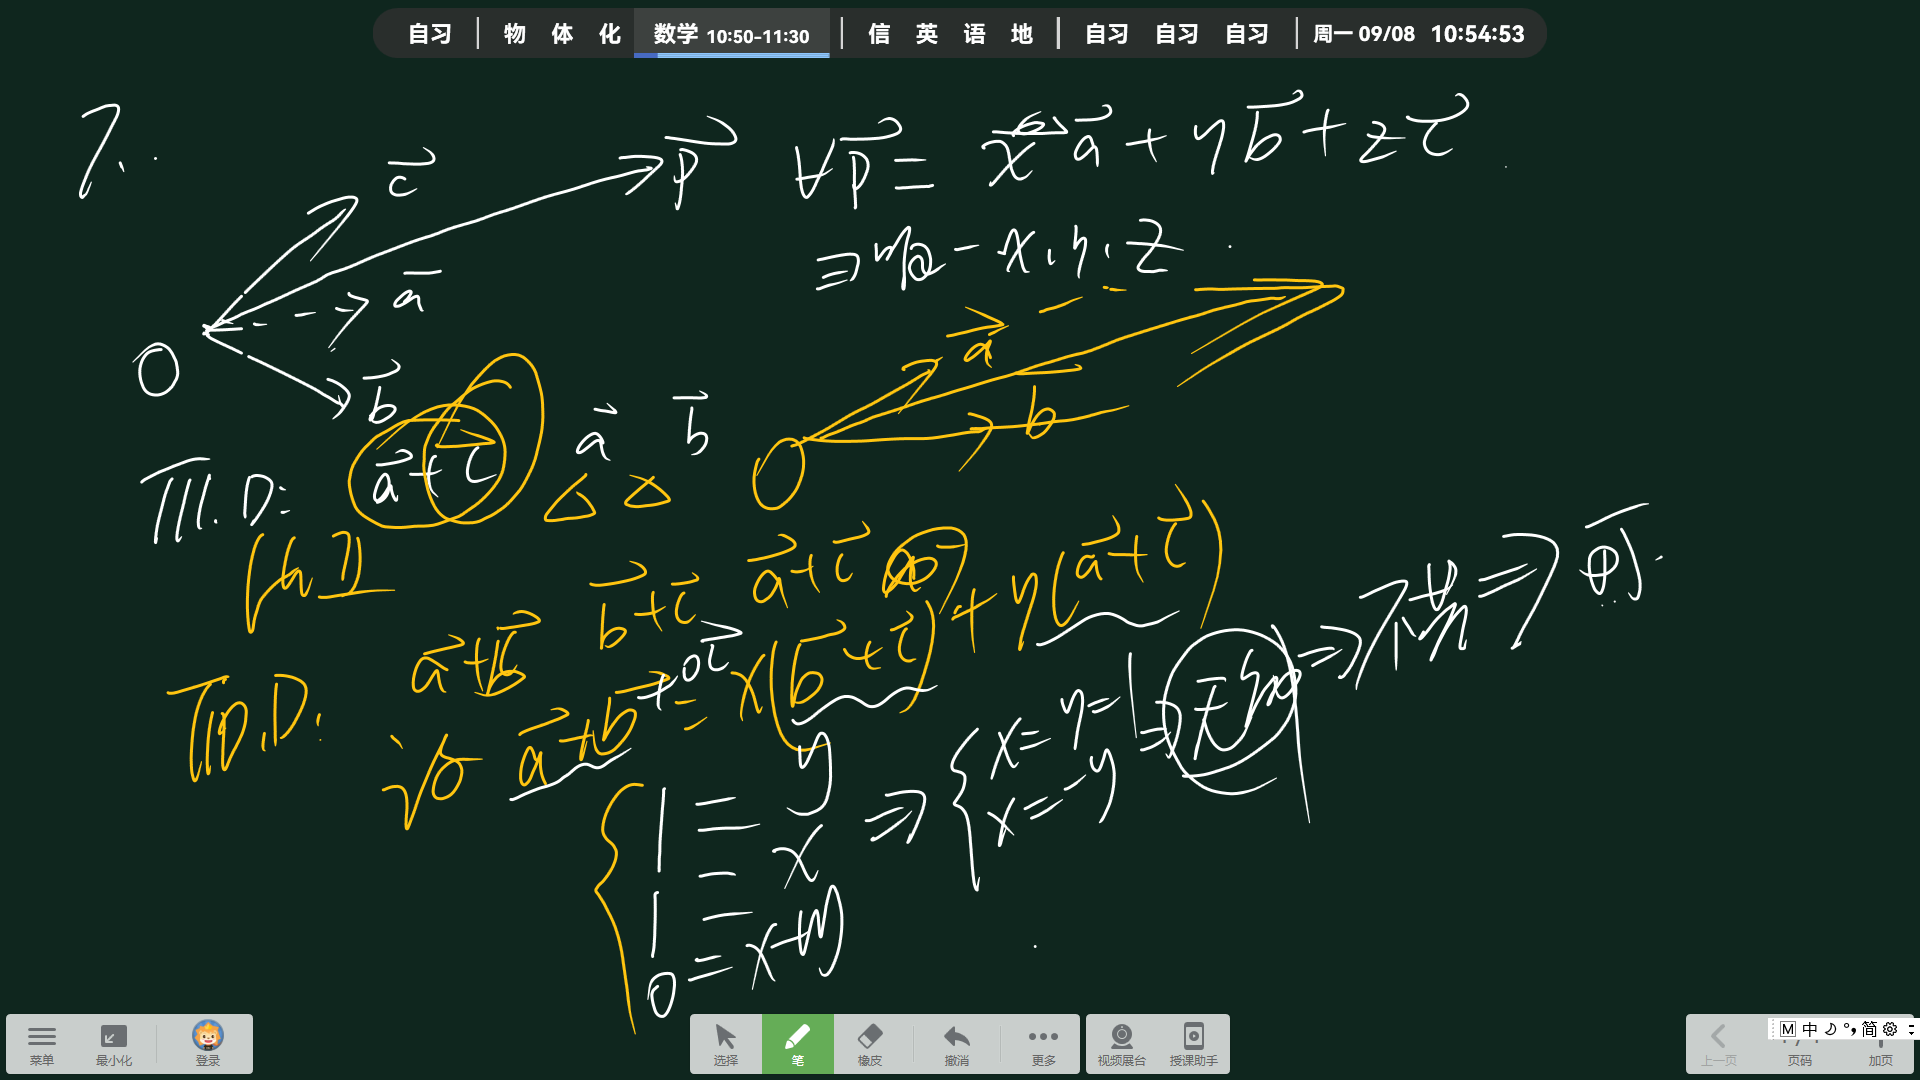 自习 | 物 体 化 数学 10:50-11:30 | 信 英 语 地 | 自习 自习 自习 | 周一 09/08 10:54:53
7.
c
P
∀P = x a + y b + z c
a
⇒ 唯一 x, y, z
O
b
a
b
a + c
a b
O
D:
a + b
b + c
a + c
D:
设 a + b + 0c = x(b + c) + y(a + c)
1 = y
1 = x
0 = x + y
⇒ { x = y = 1
x = -y
⇒ 无解 ⇒ 不共 ⇒ 可
菜单 最小化 登录
选择 笔 橡皮 撤消 更多
视频展台 授课助手
上一页 页码 加页
M 中 简